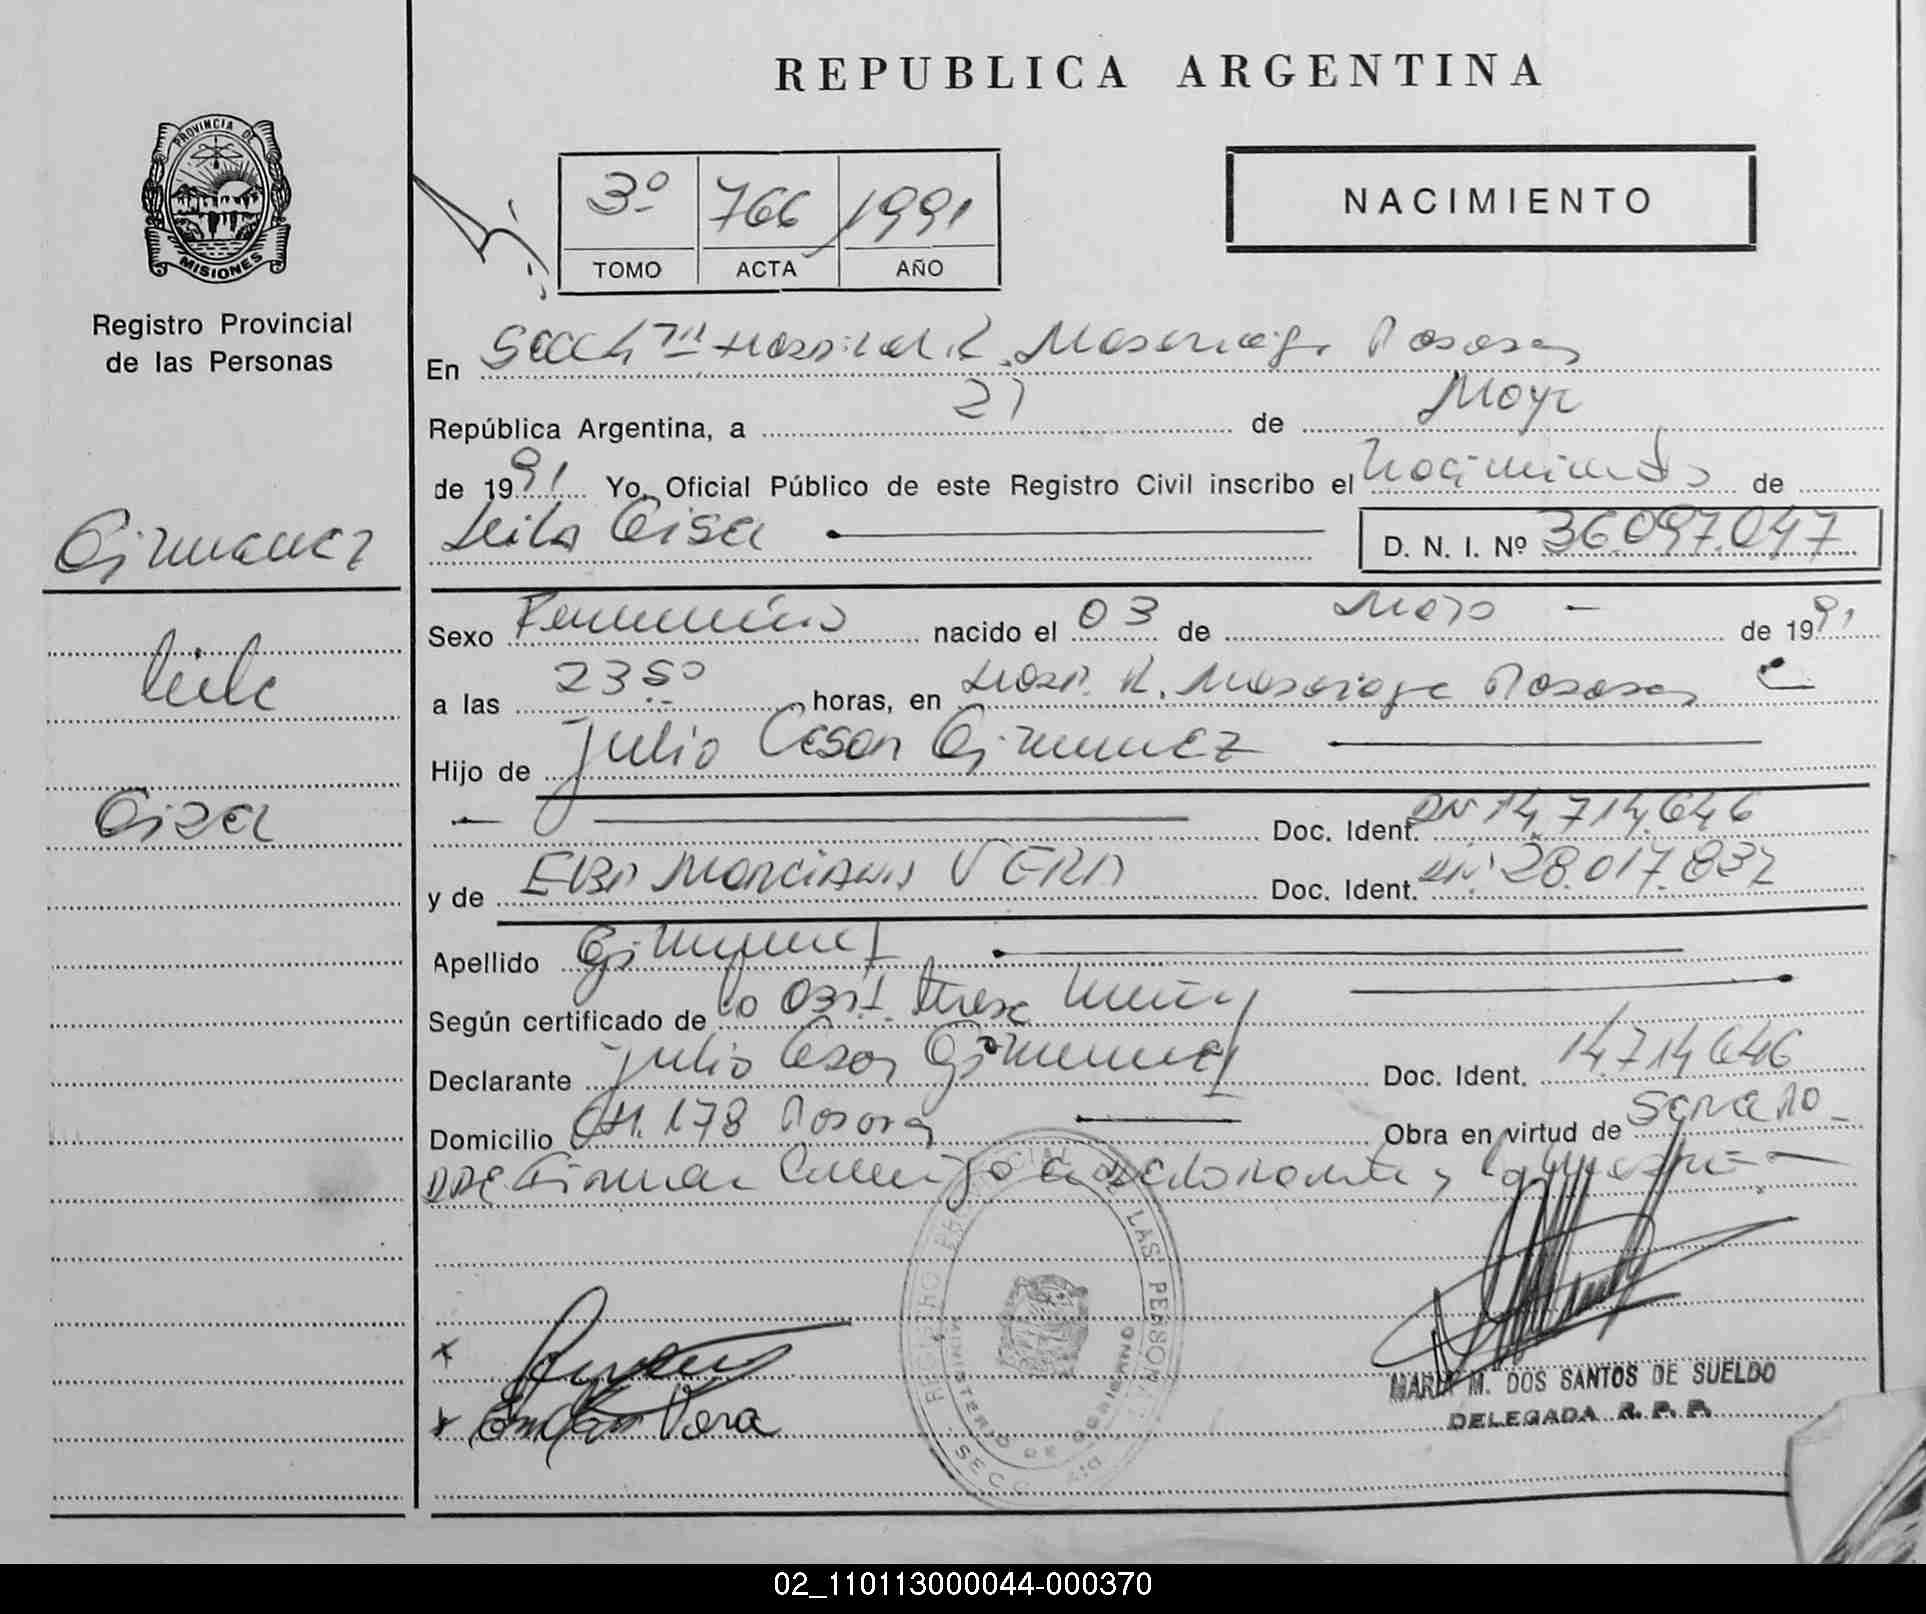 REPUBLICA ARGENTINA
PROVINCIA DE
MISIONES
Registro Provincial
de las Personas
3º 766 1991
TOMO ACTA AÑO
NACIMIENTO
En Secc 4ta Hospital R. Madariaga Posadas
República Argentina, a 27 de Mayo
de 1991 Yo, Oficial Público de este Registro Civil inscribo el nacimiento de
Leila Gisel
D. N. I. Nº 36.097.047
Gimenez
Leila
Gisel
Sexo Femenino nacido el 03 de Mayo - de 1991
a las 23 50 horas, en Hosp. R. Madariaga Posadas
Hijo de Julio Cesar Gimenez
Doc. Ident. DNI 14.714.646
y de Elba Marciana VERA Doc. Ident. DNI 28.017.832
Apellido Gimenez
Según certificado de la Obst.
Declarante Julio Cesar Gimenez Doc. Ident. 14.714.646
Domicilio CH. 178 Posadas Obra en virtud de ser el pa-
dre Firman conmigo el declarante y la
REGISTRO PROVINCIAL DE LAS PERSONAS
MINISTERIO DE GOBIERNO
SECC
x
x Vera
MARIA M. DOS SANTOS DE SUELDO
DELEGADA R. P. P.
02_110113000044-000370